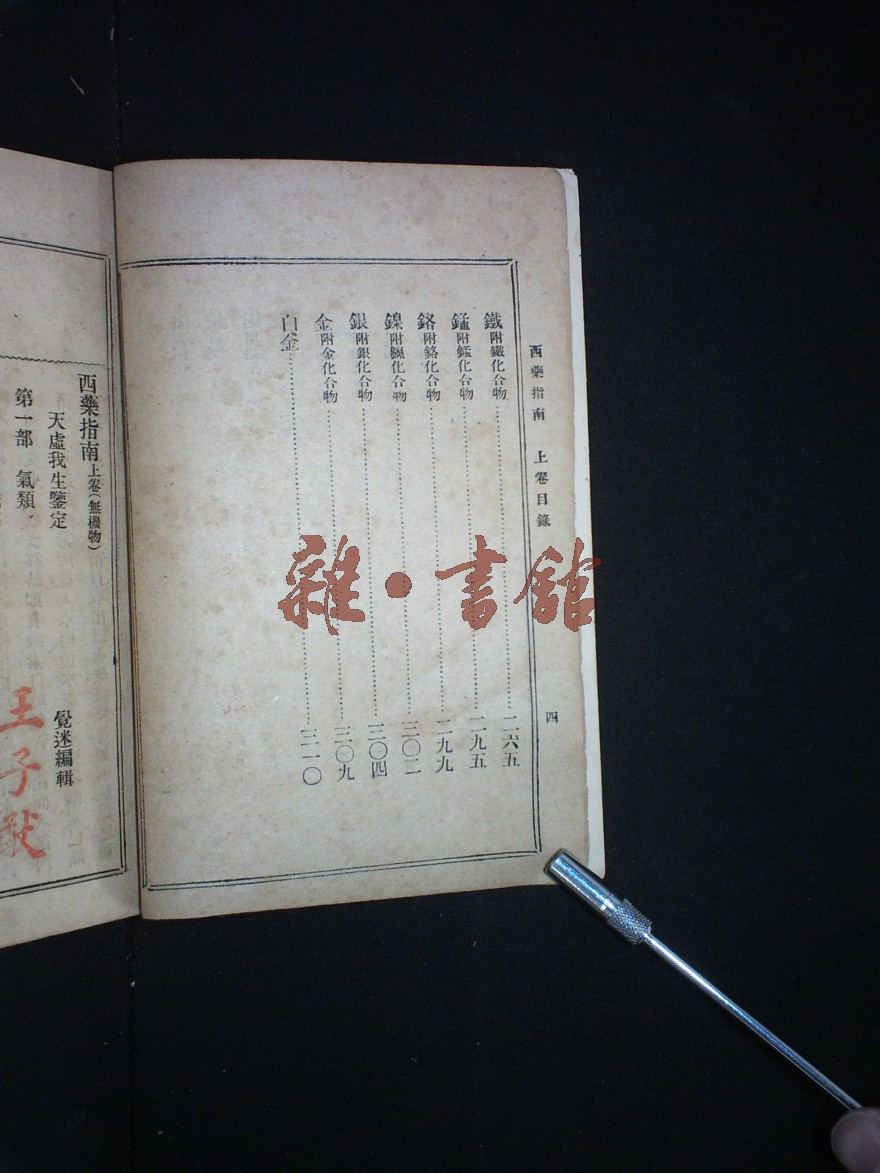 西藥指南 上卷目錄 四
鐵附鐵化合物 二六五
錳附錳化合物 二九五
鉻附鉻化合物 二九九
鎳附鎳化合物 三〇二
銀附銀化合物 三〇四
金附金化合物 三〇九
白金 三一〇
西藥指南上卷(無機物)
天虛我生鑒定
覺迷編輯
第一部 氣類
王子
雜·書館